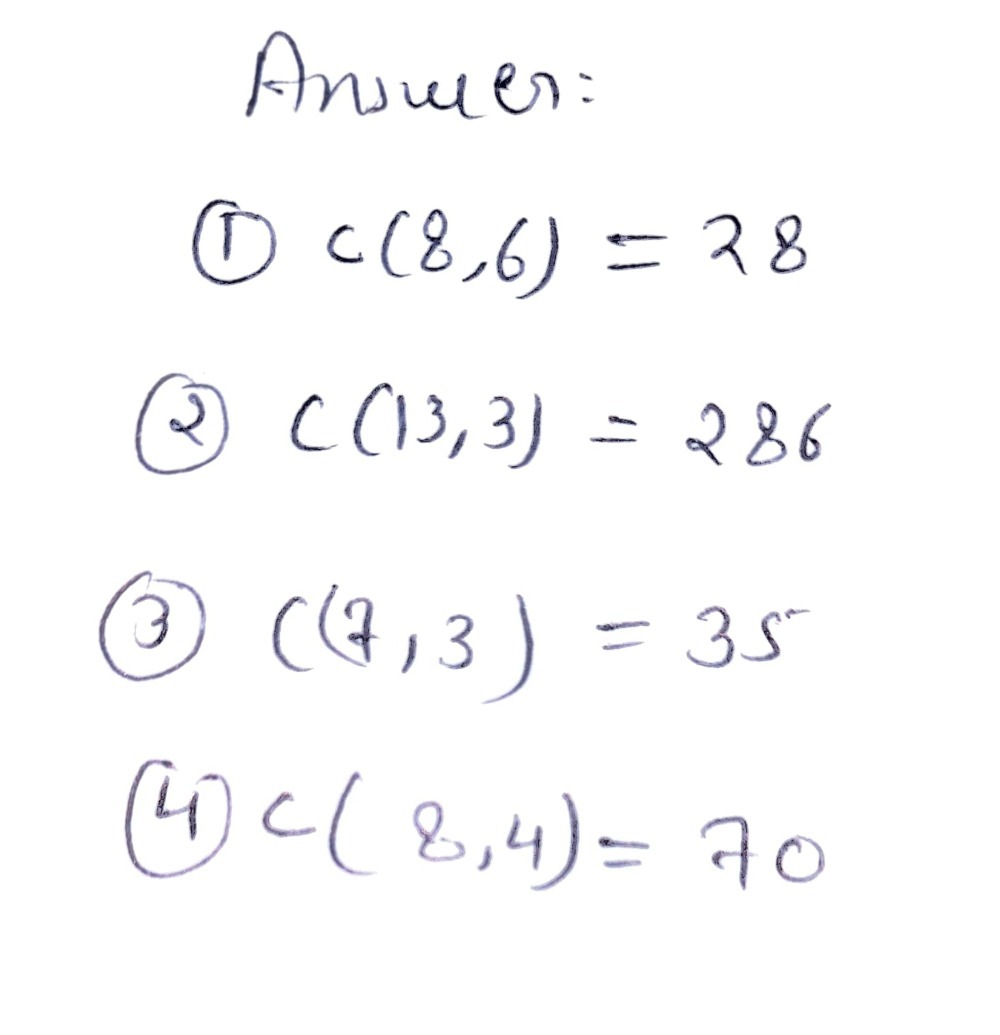 Answer:
① C(8,6) = 28
② C(13,3) = 286
③ C(7,3) = 35
④ C(8,4) = 70